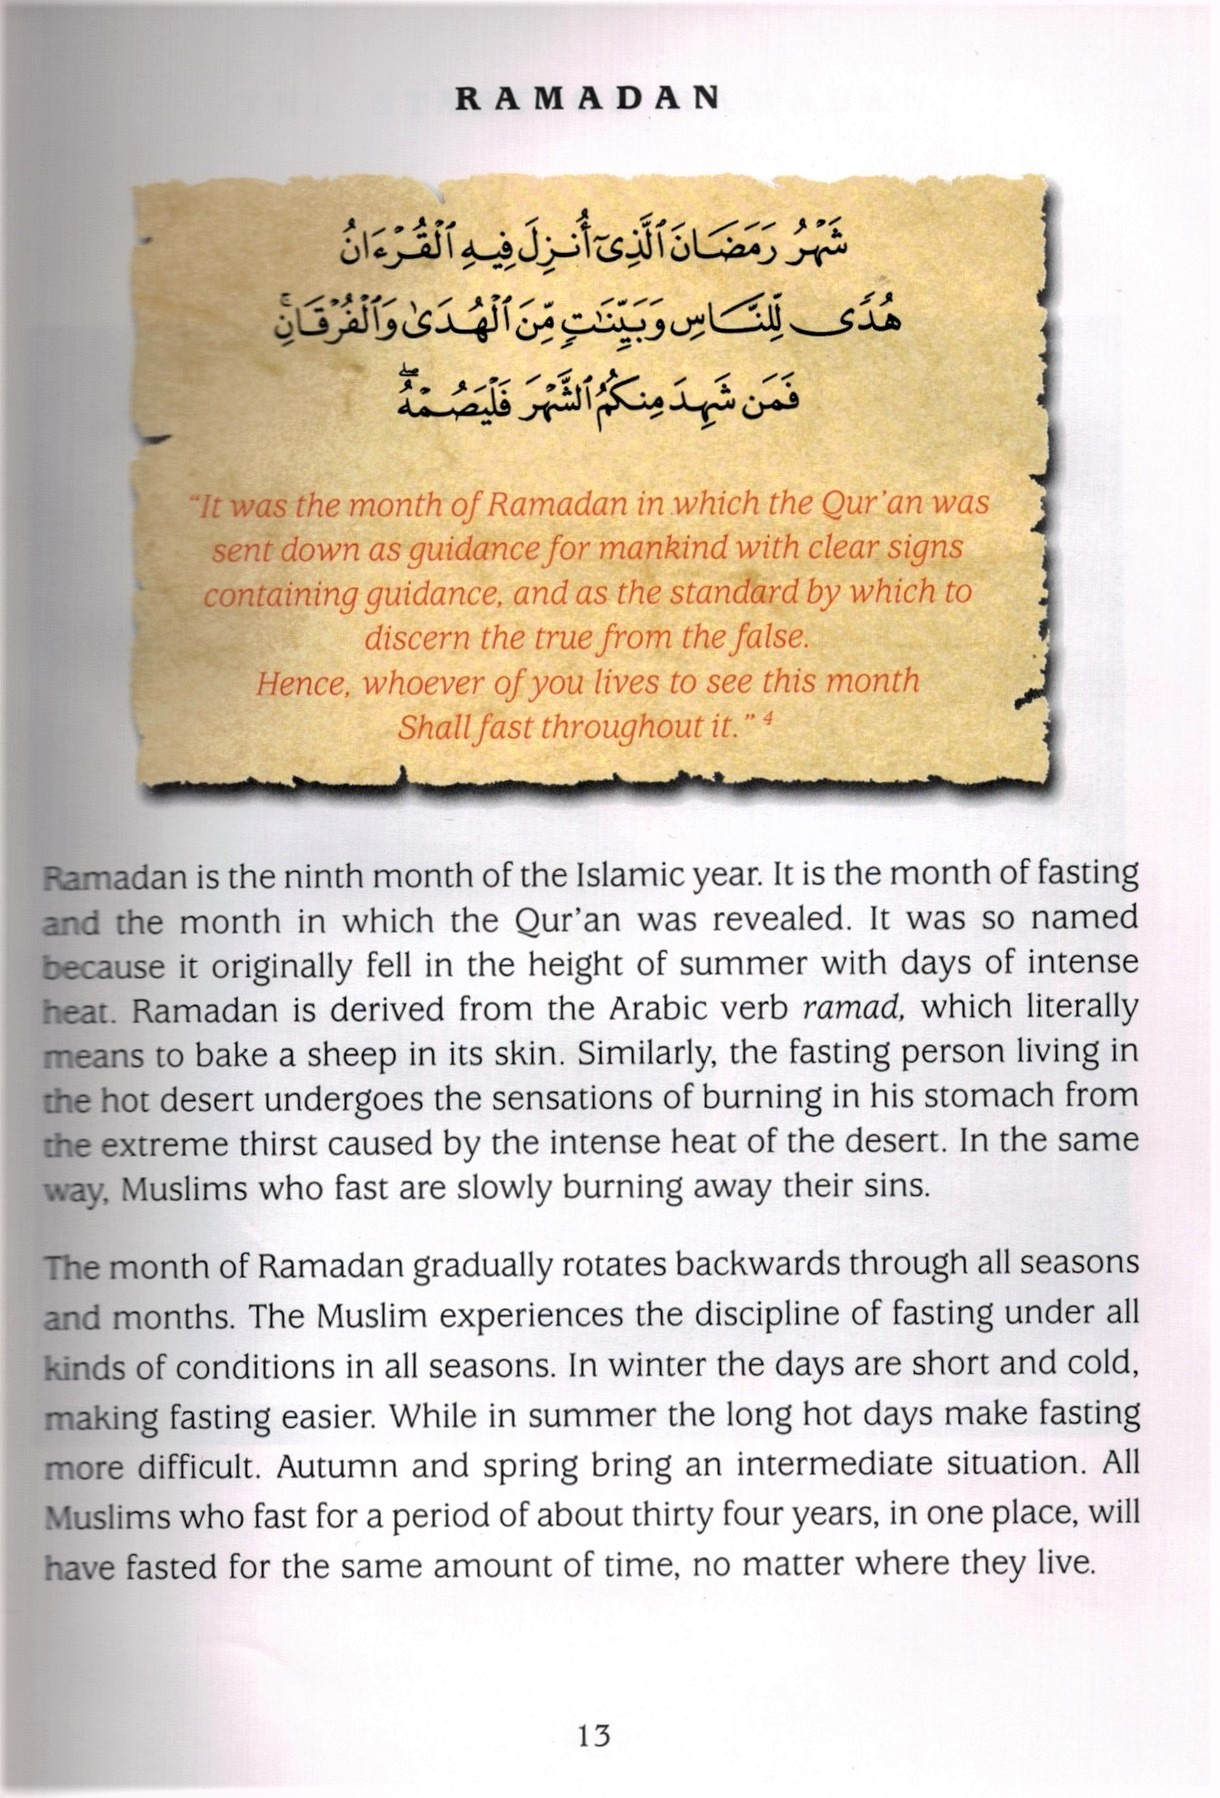 RAMADAN
شَهْرُ رَمَضَانَ ٱلَّذِىٓ أُنزِلَ فِيهِ ٱلْقُرْءَانُ
هُدًى لِّلنَّاسِ وَبَيِّنَٰتٍ مِّنَ ٱلْهُدَىٰ وَٱلْفُرْقَانِ ۚ
فَمَن شَهِدَ مِنكُمُ ٱلشَّهْرَ فَلْيَصُمْهُ ۖ
“It was the month of Ramadan in which the Qur’an was
sent down as guidance for mankind with clear signs
containing guidance, and as the standard by which to
discern the true from the false.
Hence, whoever of you lives to see this month
Shall fast throughout it.” 4
Ramadan is the ninth month of the Islamic year. It is the month of fasting
and the month in which the Qur’an was revealed. It was so named
because it originally fell in the height of summer with days of intense
heat. Ramadan is derived from the Arabic verb ramad, which literally
means to bake a sheep in its skin. Similarly, the fasting person living in
the hot desert undergoes the sensations of burning in his stomach from
the extreme thirst caused by the intense heat of the desert. In the same
way, Muslims who fast are slowly burning away their sins.
The month of Ramadan gradually rotates backwards through all seasons
and months. The Muslim experiences the discipline of fasting under all
kinds of conditions in all seasons. In winter the days are short and cold,
making fasting easier. While in summer the long hot days make fasting
more difficult. Autumn and spring bring an intermediate situation. All
Muslims who fast for a period of about thirty four years, in one place, will
have fasted for the same amount of time, no matter where they live.
13